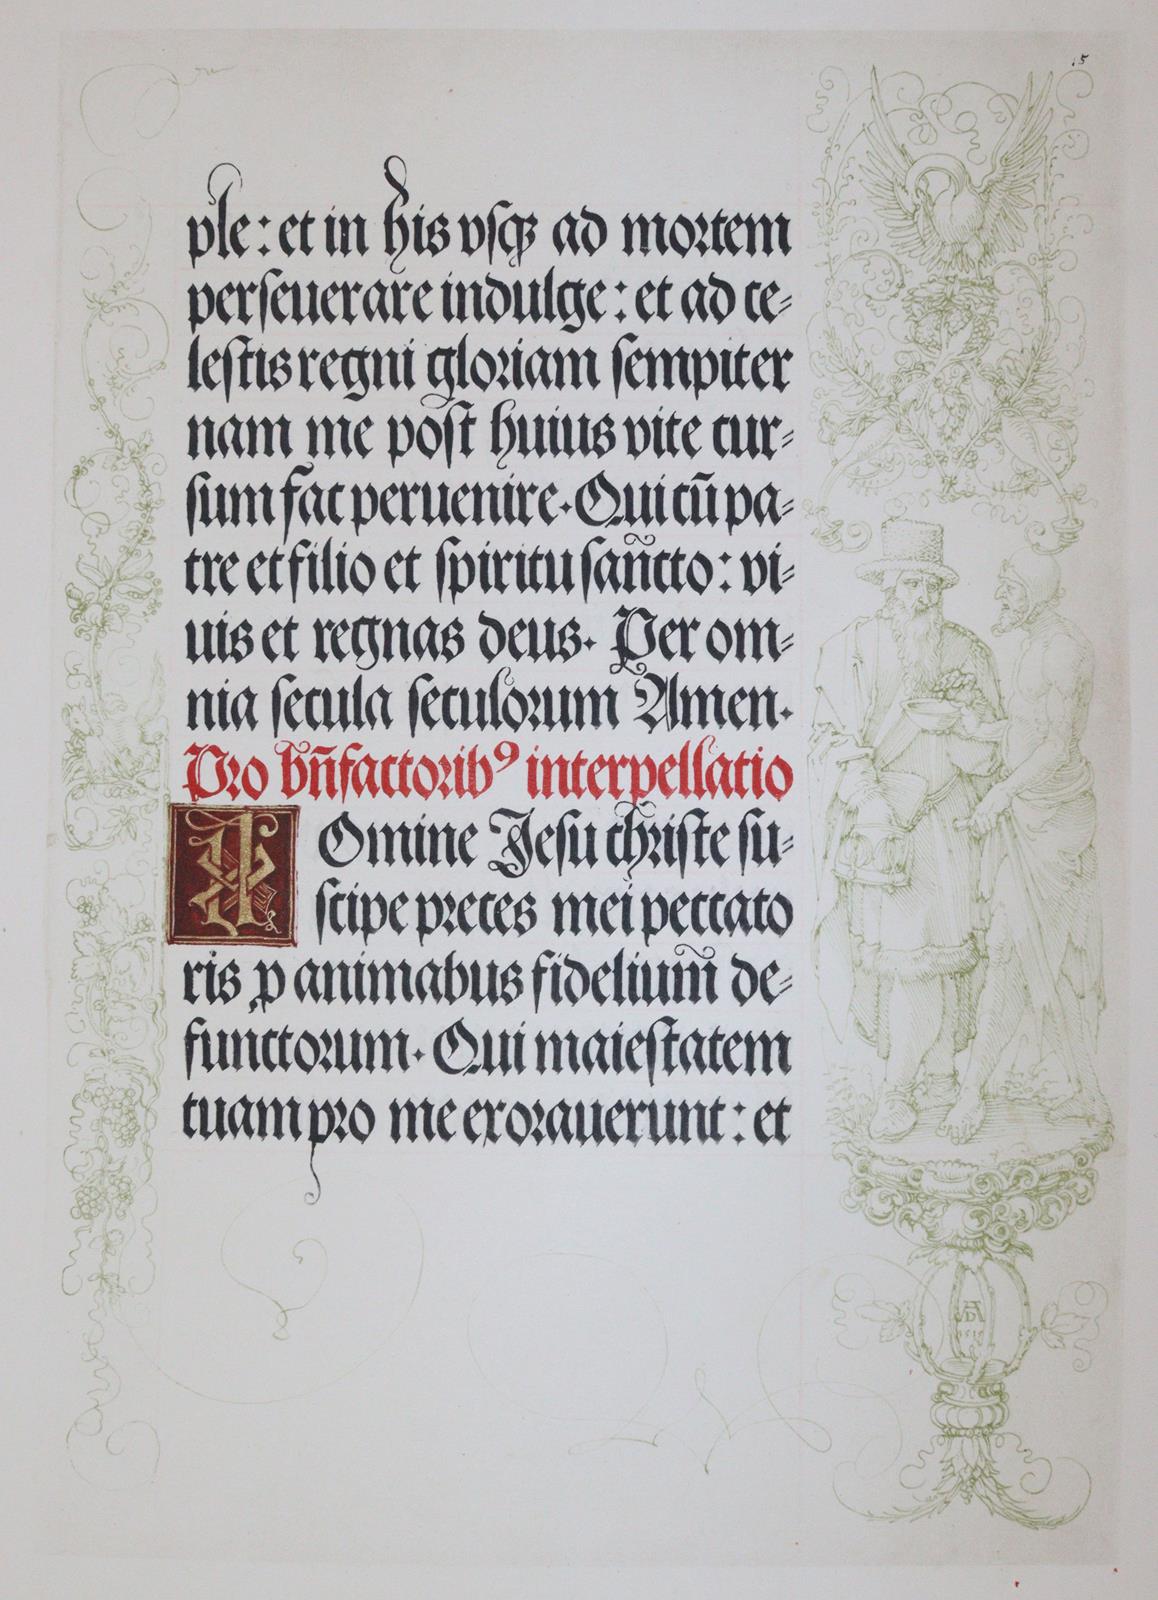 15
ple: et in his vsqꝫ ad mortem
perseuerare indulge: et ad ce⸗
lestis regni gloriam sempiter
nam me post huius vite cur⸗
sum fac peruenire. Qui cū pa⸗
tre et filio et spiritu san̄cto: vi⸗
uis et regnas deus. Per om⸗
nia secula seculorum Amen.
Pro bn̄factoribꝰ interpellatio
DOmine Jesu christe su⸗
scipe preces mei peccato
ris ꝑ animabus fidelium̄ de⸗
functorum. Qui maiestatem
tuam pro me exorauerunt: et
AD